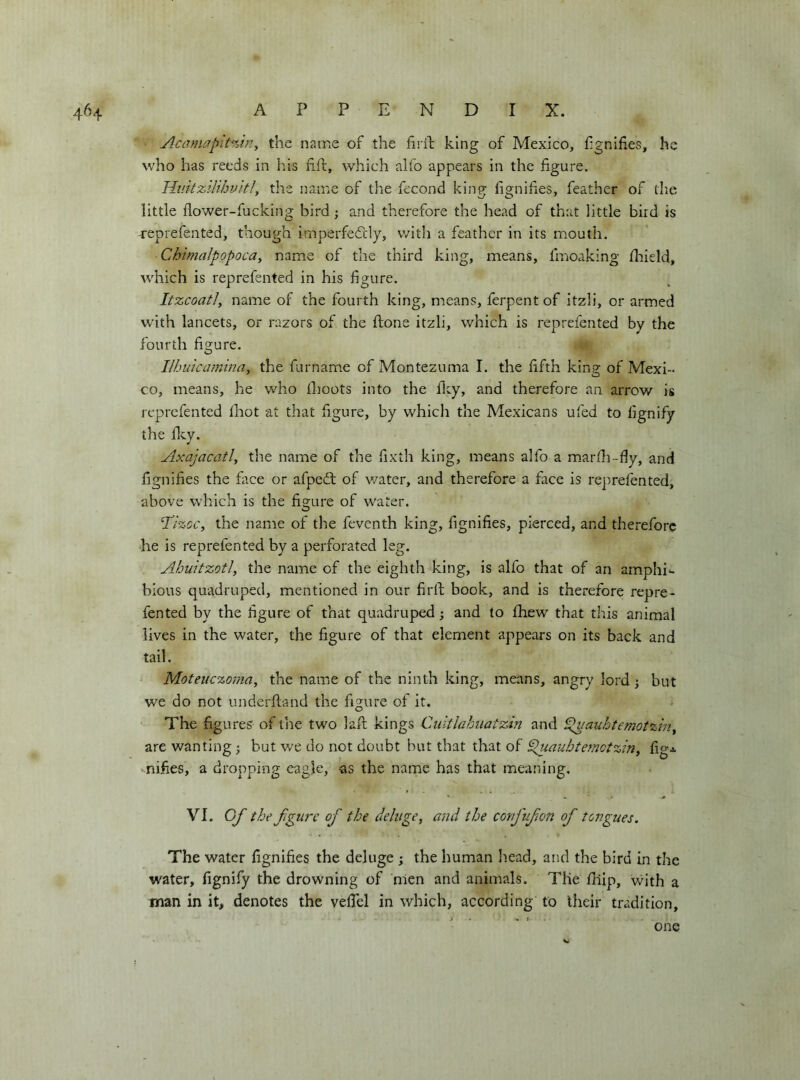 464 A P P E N D I X.
Acamapitzin, the name of the firſt king of Mexico, ſignifies, he
who has reeds in his fiſt, which alſo appears in the figure.
Huitzilihvitl, the name of the ſecond king ſignifies, feather of the
little flower-ſucking bird; and therefore the head of that little bird is
repreſented, though imperfectly, with a feather in its mouth.
Chimalpopoca, name of the third king, means, ſmoaking ſhield,
which is repreſented in his figure.
Itzcoatl, name of the fourth king, means, ſerpent of itzli, or armed
with lancets, or razors of the ſtone itzli, which is repreſented by the
fourth figure.
Ilhuicamina, the ſurname of Montezuma I. the fifth king of Mexi-
co, means, he who ſhoots into the ſky, and therefore an arrow is
repreſented ſhot at that figure, by which the Mexicans uſed to ſignify
the ſky.
Axajacatl, the name of the ſixth king, means alſo a marſh-fly, and
ſignifies the face or aſpect of water, and therefore a face is repreſented,
above which is the figure of water.
Tizoc, the name of the ſeventh king, ſignifies, pierced, and therefore
he is repreſented by a perforated leg.
Ahuitzotl, the name of the eighth king, is alſo that of an amphi-
bious quadruped, mentioned in our firſt book, and is therefore repre-
ſented by the figure of that quadruped; and to ſhew that this animal
lives in the water, the figure of that element appears on its back and
tail.
Moteuczoma, the name of the ninth king, means, angry lord; but
we do not underſtand the figure of it.
The figures of the two laſt kings Cuitlahuatzin and Quauhtemotzin,
are wanting; but we do not doubt but that that of Quauhtemotzin, ſig-
nifies, a dropping eagle, as the name has that meaning.
VI. Of the figure of the deluge, and the confuſion of tongues.
The water ſignifies the deluge; the human head, and the bird in the
water, ſignify the drowning of men and animals. The ſhip, with a
man in it, denotes the veſſel in which, according to their tradition,
one